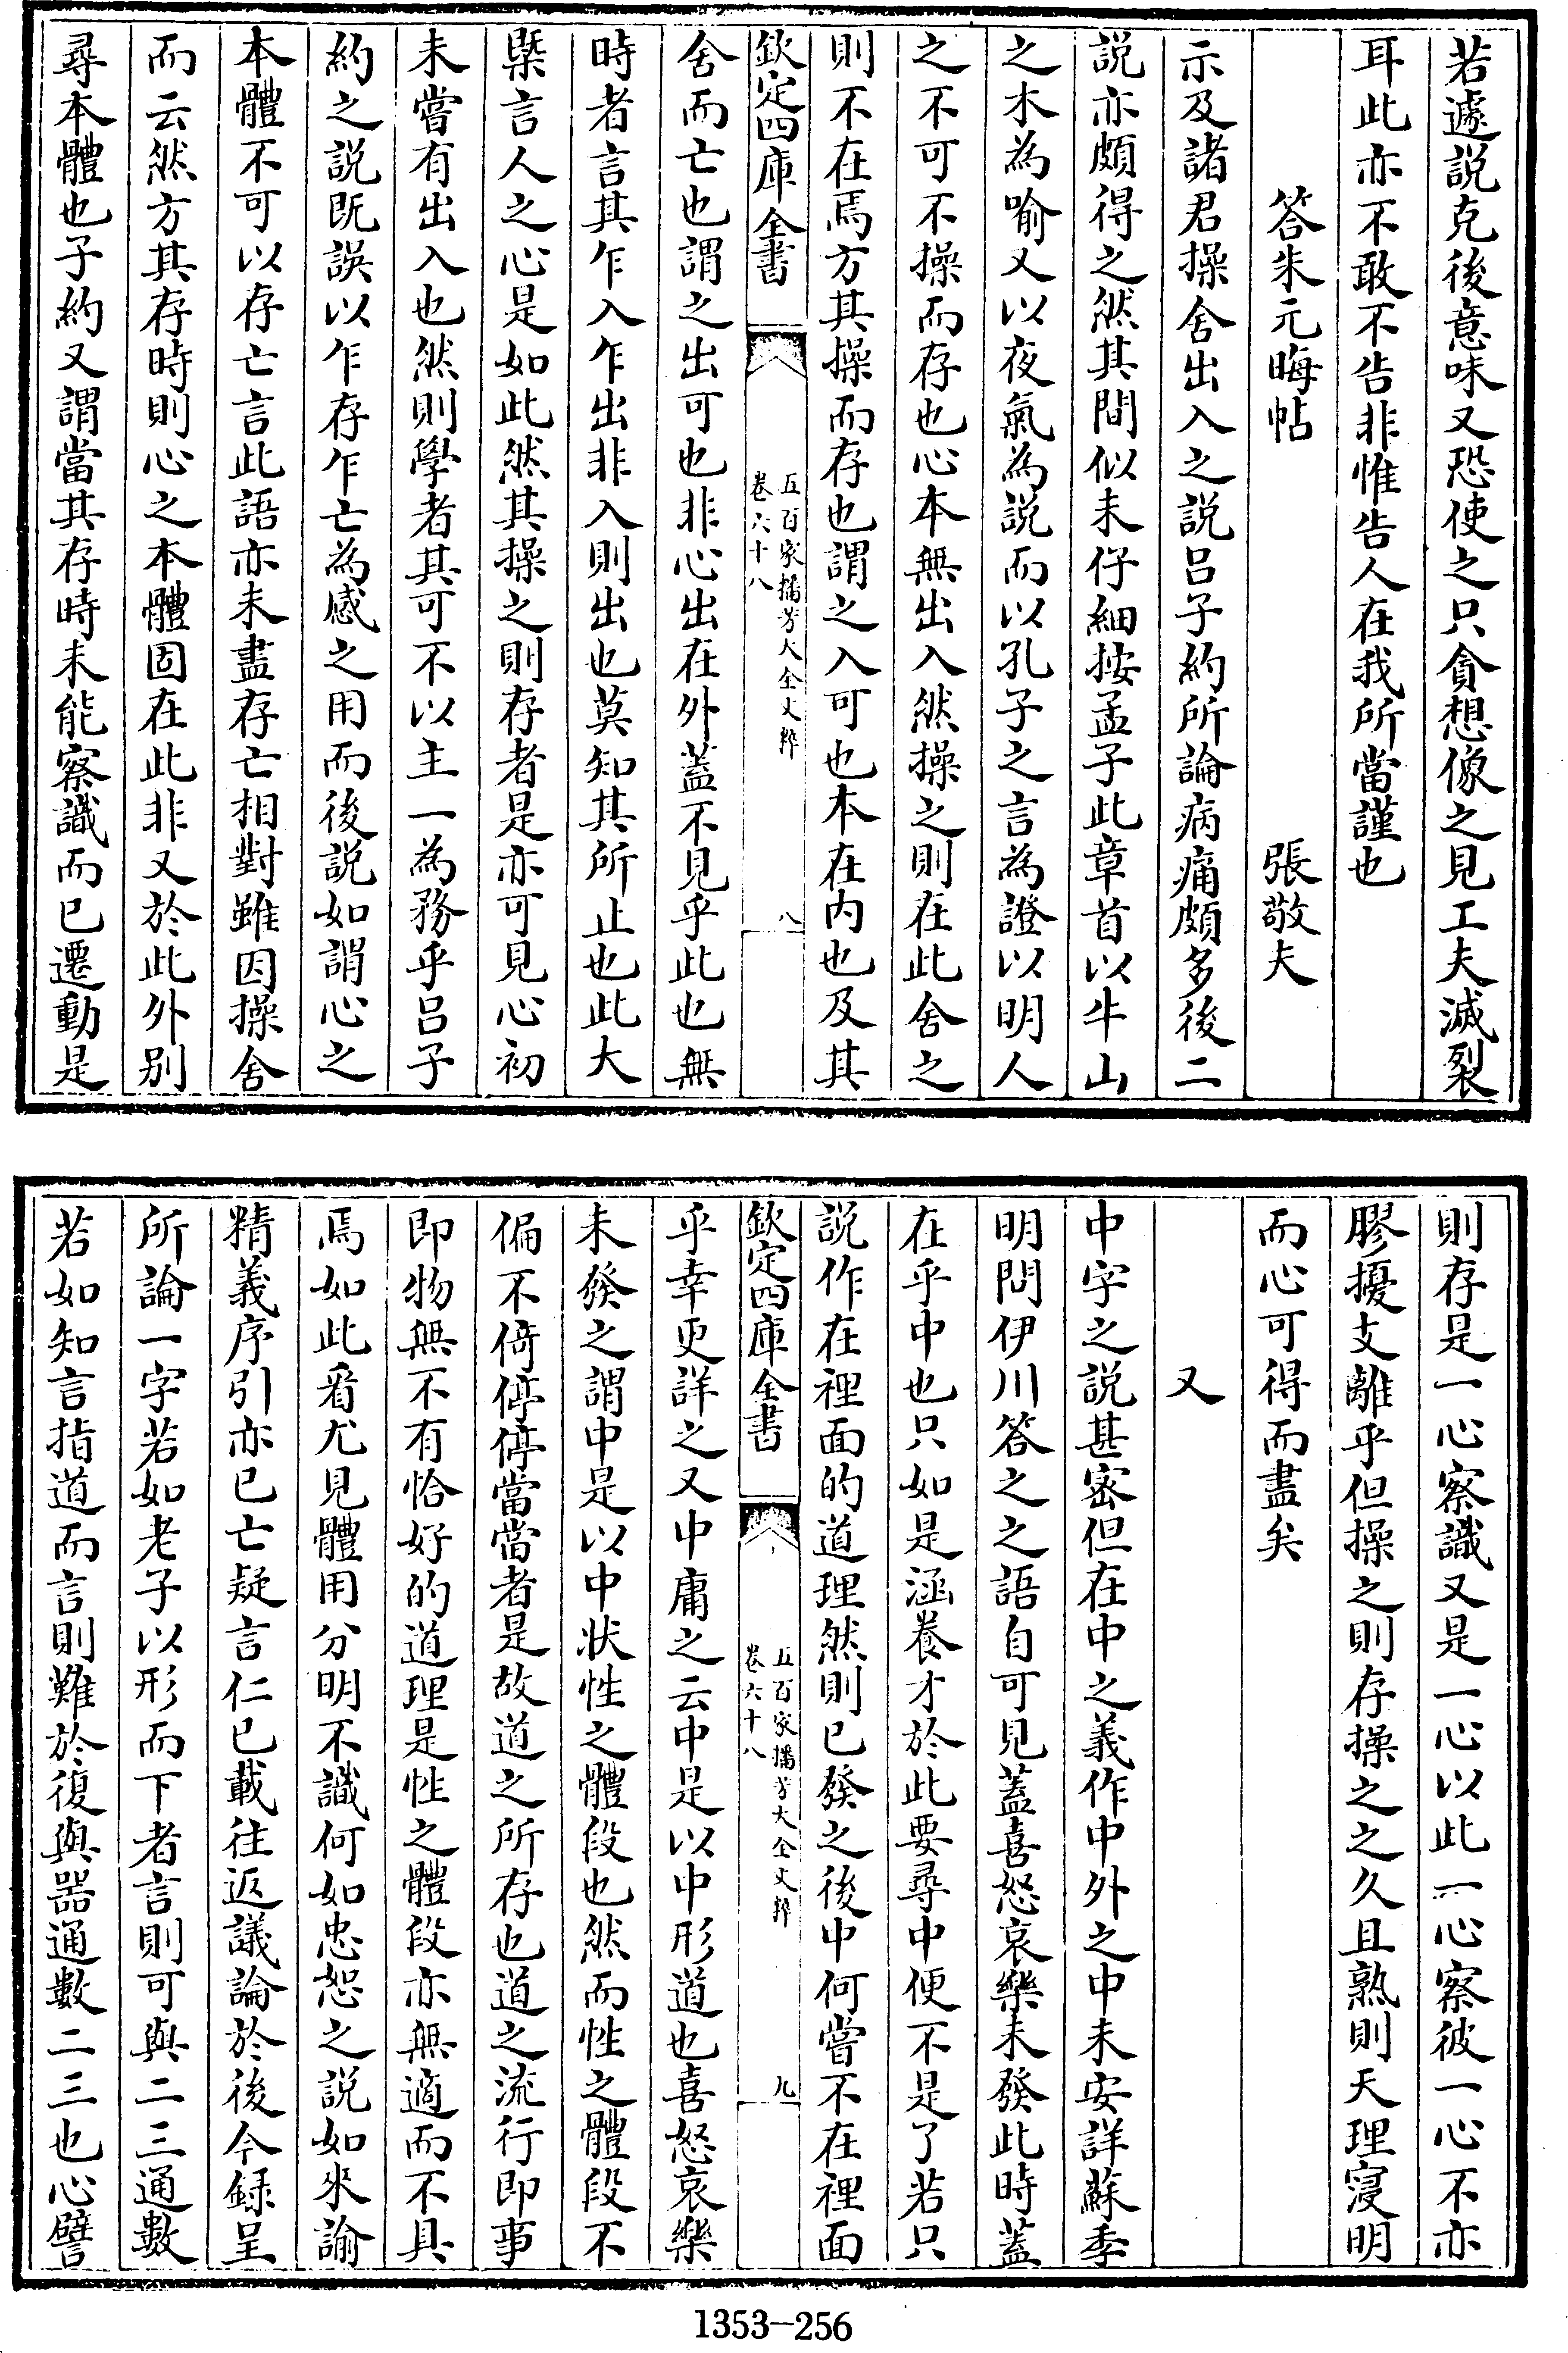 若遽説克後意味又恐使之只貪想像之見工夫滅裂
耳此亦不敢不告非惟告人在我所當謹也
答朱元晦帖　張敬夫
示及諸君操舍出入之説吕子約所論病痛頗多後二
説亦頗得之然其間似未仔細按孟子此章首以牛山
之木為喻又以夜氣為説而以孔子之言為證以明人
之不可不操而存也心本無出入然操之則在此舍之
則不在焉方其操而存也謂之入可也本在内也及其
欽定四庫全書
五百家播芳大全文粹
卷六十八
八
舍而亡也謂之出可也非心出在外蓋不見乎此也無
時者言其乍入乍出非入則出也莫知其所止也此大
槩言人之心是如此然其操之則存者是亦可見心初
未嘗有出入也然則學者其可不以主一為務乎吕子
約之説既誤以乍存乍亡為感之用而後説如謂心之
本體不可以存亡言此語亦未盡存亡相對雖因操舍
而云然方其存時則心之本體固在此非又於此外别
尋本體也子約又謂當其存時未能察識而已遷動是
則存是一心察識又是一心以此一心察彼一心不亦
膠擾支離乎但操之則存操之之久且熟則天理寖明
而心可得而盡矣
又
中字之説甚密但在中之義作中外之中未安詳蘇季
明問伊川答之之語自可見蓋喜怒哀樂未發此時蓋
在乎中也只如是涵養才於此要尋中便不是了若只
説作在裡面的道理然則已發之後中何嘗不在裡面
欽定四庫全書
五百家播芳大全文粹
卷六十八
九
乎幸更詳之又中庸之云中是以中形道也喜怒哀樂
未發之謂中是以中狀性之體段也然而性之體段不
偏不倚停停當當者是故道之所存也道之流行即事
即物無不有恰好的道理是性之體段亦無適而不具
焉如此看尤見體用分明不識何如忠恕之説如來諭
精義序引亦已亡疑言仁已載往返議論於後今録呈
所論一字若如老子以形而下者言則可與二三通數
若如知言指道而言則難於復與器通數二三也心譬
1353-256